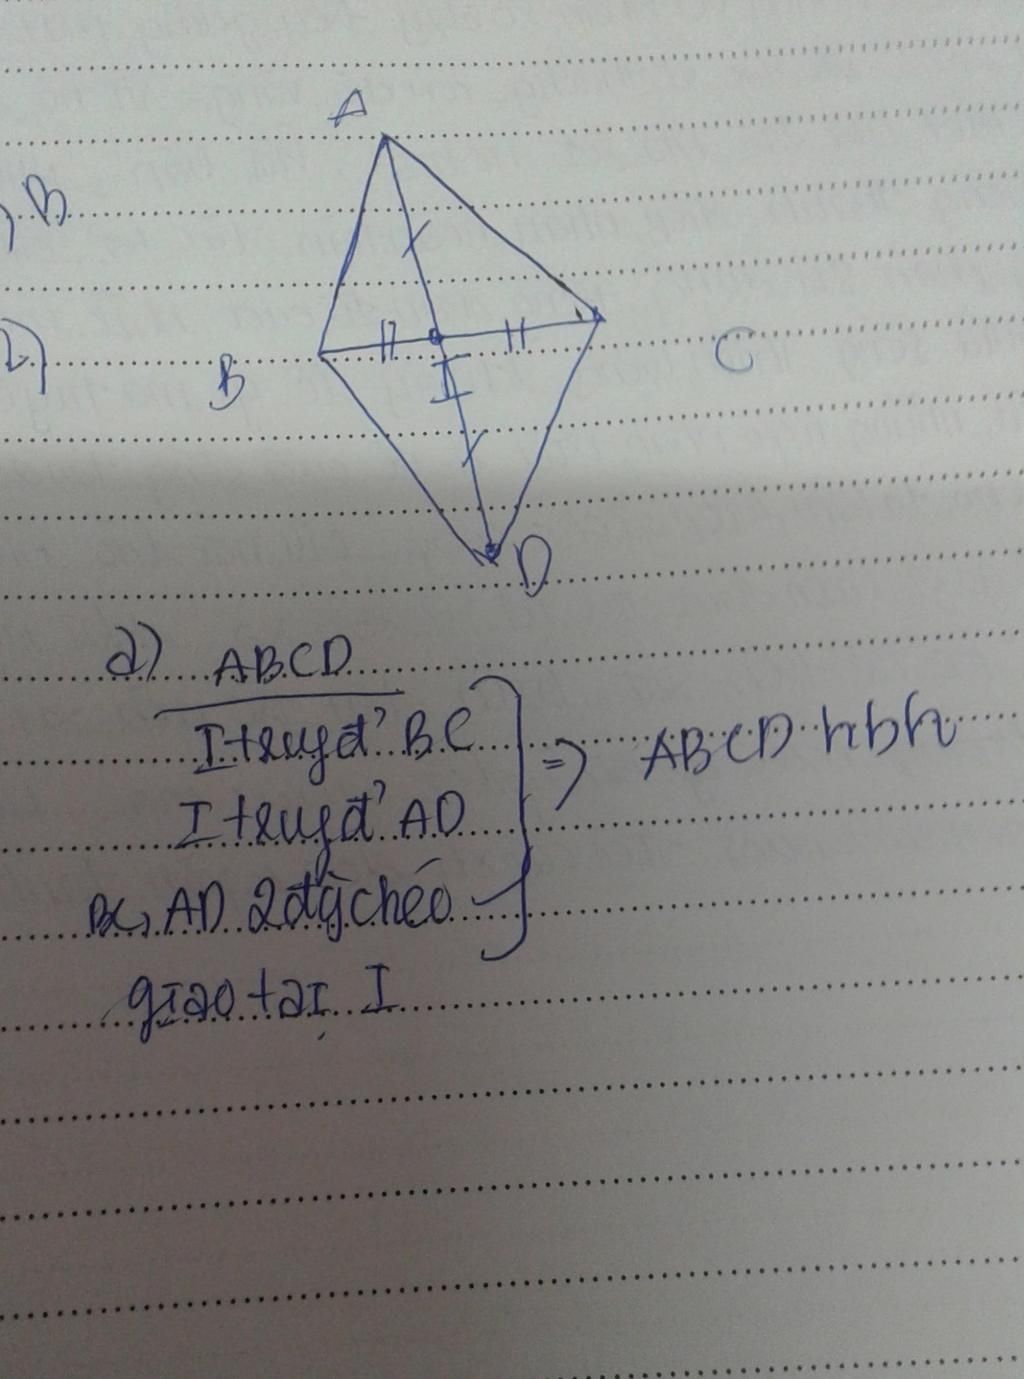 A
, B
2)
B
C
I
D
a) ABCD
I trugđ' BC
I trugđ' AD
=> ABCD hbh
BC, AD 2 đg chéo
giao tại I